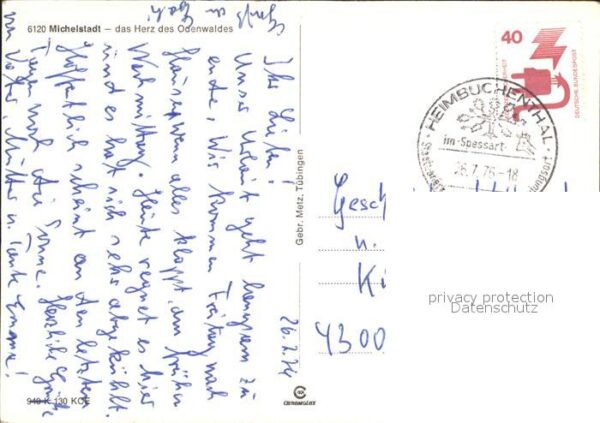 6120 Michelstadt – das Herz des Odenwaldes
Ihr Lieben!
Unser Urlaub geht langsam zu
ende, Wir kommen Freitag nach
Hause, wenn alles klappt, am frühen
Nachmittag. Heute regnet es hier
und es hat sich sehr abgekühlt.
Hoffentlich scheint an den letzten
Tagen noch die Sonne. Herzliche Grüße
von Vater, Mutter u. Tante Emma!
26.7.76
Gebr. Metz, Tübingen
CHROMOLUX
910 K 130 KCE
40
DEUTSCHE BUNDESPOST
HEIMBUCHENTHAL
im-Spessart
26.7.76-18
Gesch
u.
Ki
4300
privacy protection
Datenschutz